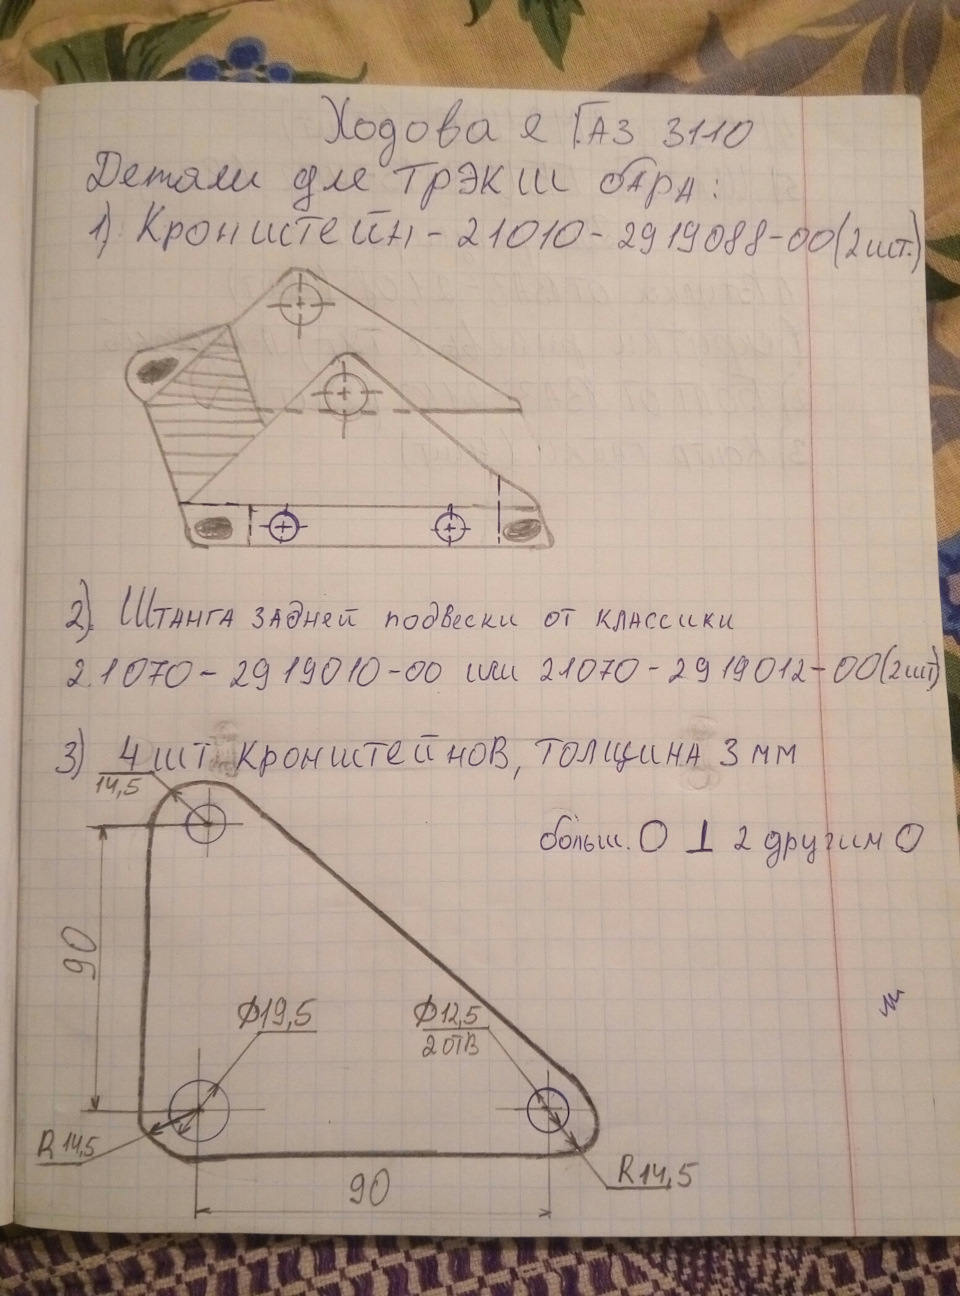 Ходовая ГАЗ 3110
Детали для ТРЭКШ бара:
1) Кронштейн-21010-2919088-00(2шт.)
2). Штанга задней подвески от классики
21070-2919010-00 или 21070-2919012-00(2шт)
3) 4 шт кронштейнов, толщина 3 мм
14,5
больш. O ⊥ 2 другим O
90
Ф19,5
Ф12,5
2 отв
R 14,5
90
R14,5